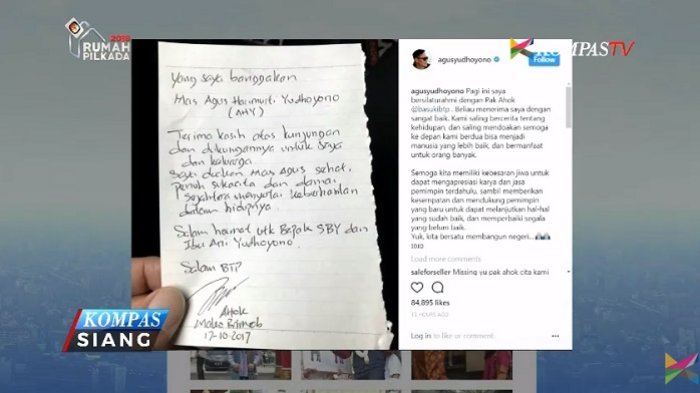 2018
RUMAH
PILKADA
KOMPASTV
Yang saya banggakan
Mas Agus Harimurti Yudhoyono
(AHY)
Terima kasih atas kunjungan
dan dukungannya untuk saya
dan keluarga
Saya doakan Mas Agus sehat,
penuh sukacita dan damai
sejahtera menyertai
dalam hidupnya.
Salam hormat utk Bapak SBY dan
Ibu Ani Yudhoyono.
Salam BTP
Ahok
Mako Brimob
17-10-2017
agusyudhoyono
Follow
agusyudhoyono Pagi ini saya
bersilaturahmi dengan Pak Ahok
@basukibtp . Beliau menerima saya dengan
sangat baik. Kami saling bercerita tentang
kehidupan, dan saling mendoakan semoga
ke depan kami berdua bisa menjadi
manusia yang lebih baik, dan bermanfaat
untuk orang banyak.
Semoga kita memiliki kebesaran jiwa untuk
dapat mengapresiasi karya dan jasa
pemimpin terdahulu, sambil memberikan
kesempatan dan mendukung pemimpin
yang baru untuk dapat melanjutkan hal-hal
yang sudah baik, dan memperbaiki segala
yang belum baik.
Yuk, kita bersatu membangun negeri...
Load more comments
saleforseller Missing yu pak ahok cita kami
84,895 likes
11 HOURS AGO
Log in to like or comment.
KOMPAS
SIANG